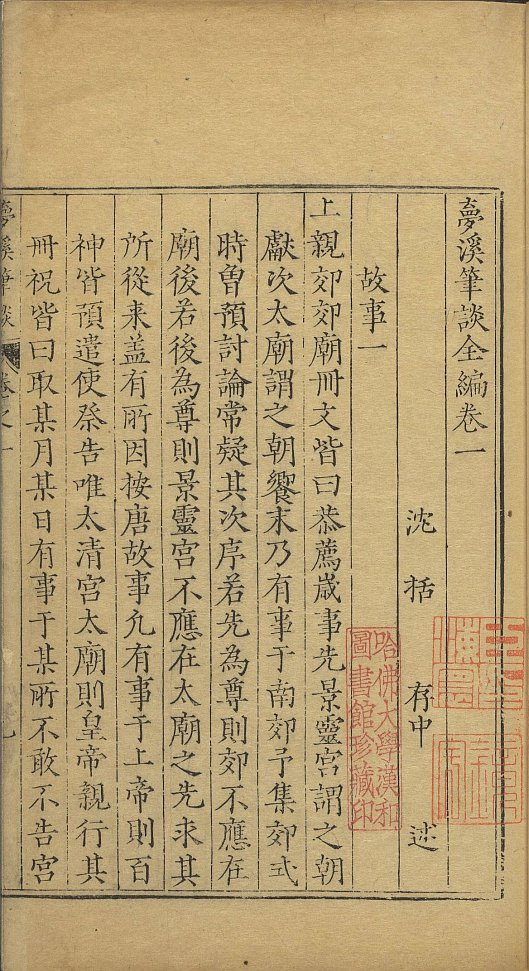 夢溪筆談全編卷一
沈括存中述
故事一
上親郊郊廟冊文皆曰恭薦歲事先景靈宮謂之朝
獻次太廟謂之朝饗末乃有事于南郊予集郊式
時曾預討論常疑其次序若先為尊則郊不應在
廟後若後為尊則景靈宮不應在太廟之先求其
所從来盖有所因按唐故事凢有事于上帝則百
神皆預遣使祭告唯太清宮太廟則皇帝親行其
冊祝皆曰取某月某日有事于某所不敢不告宮
夢溪筆談 卷之一
哈佛大學漢和圖書館珍藏印